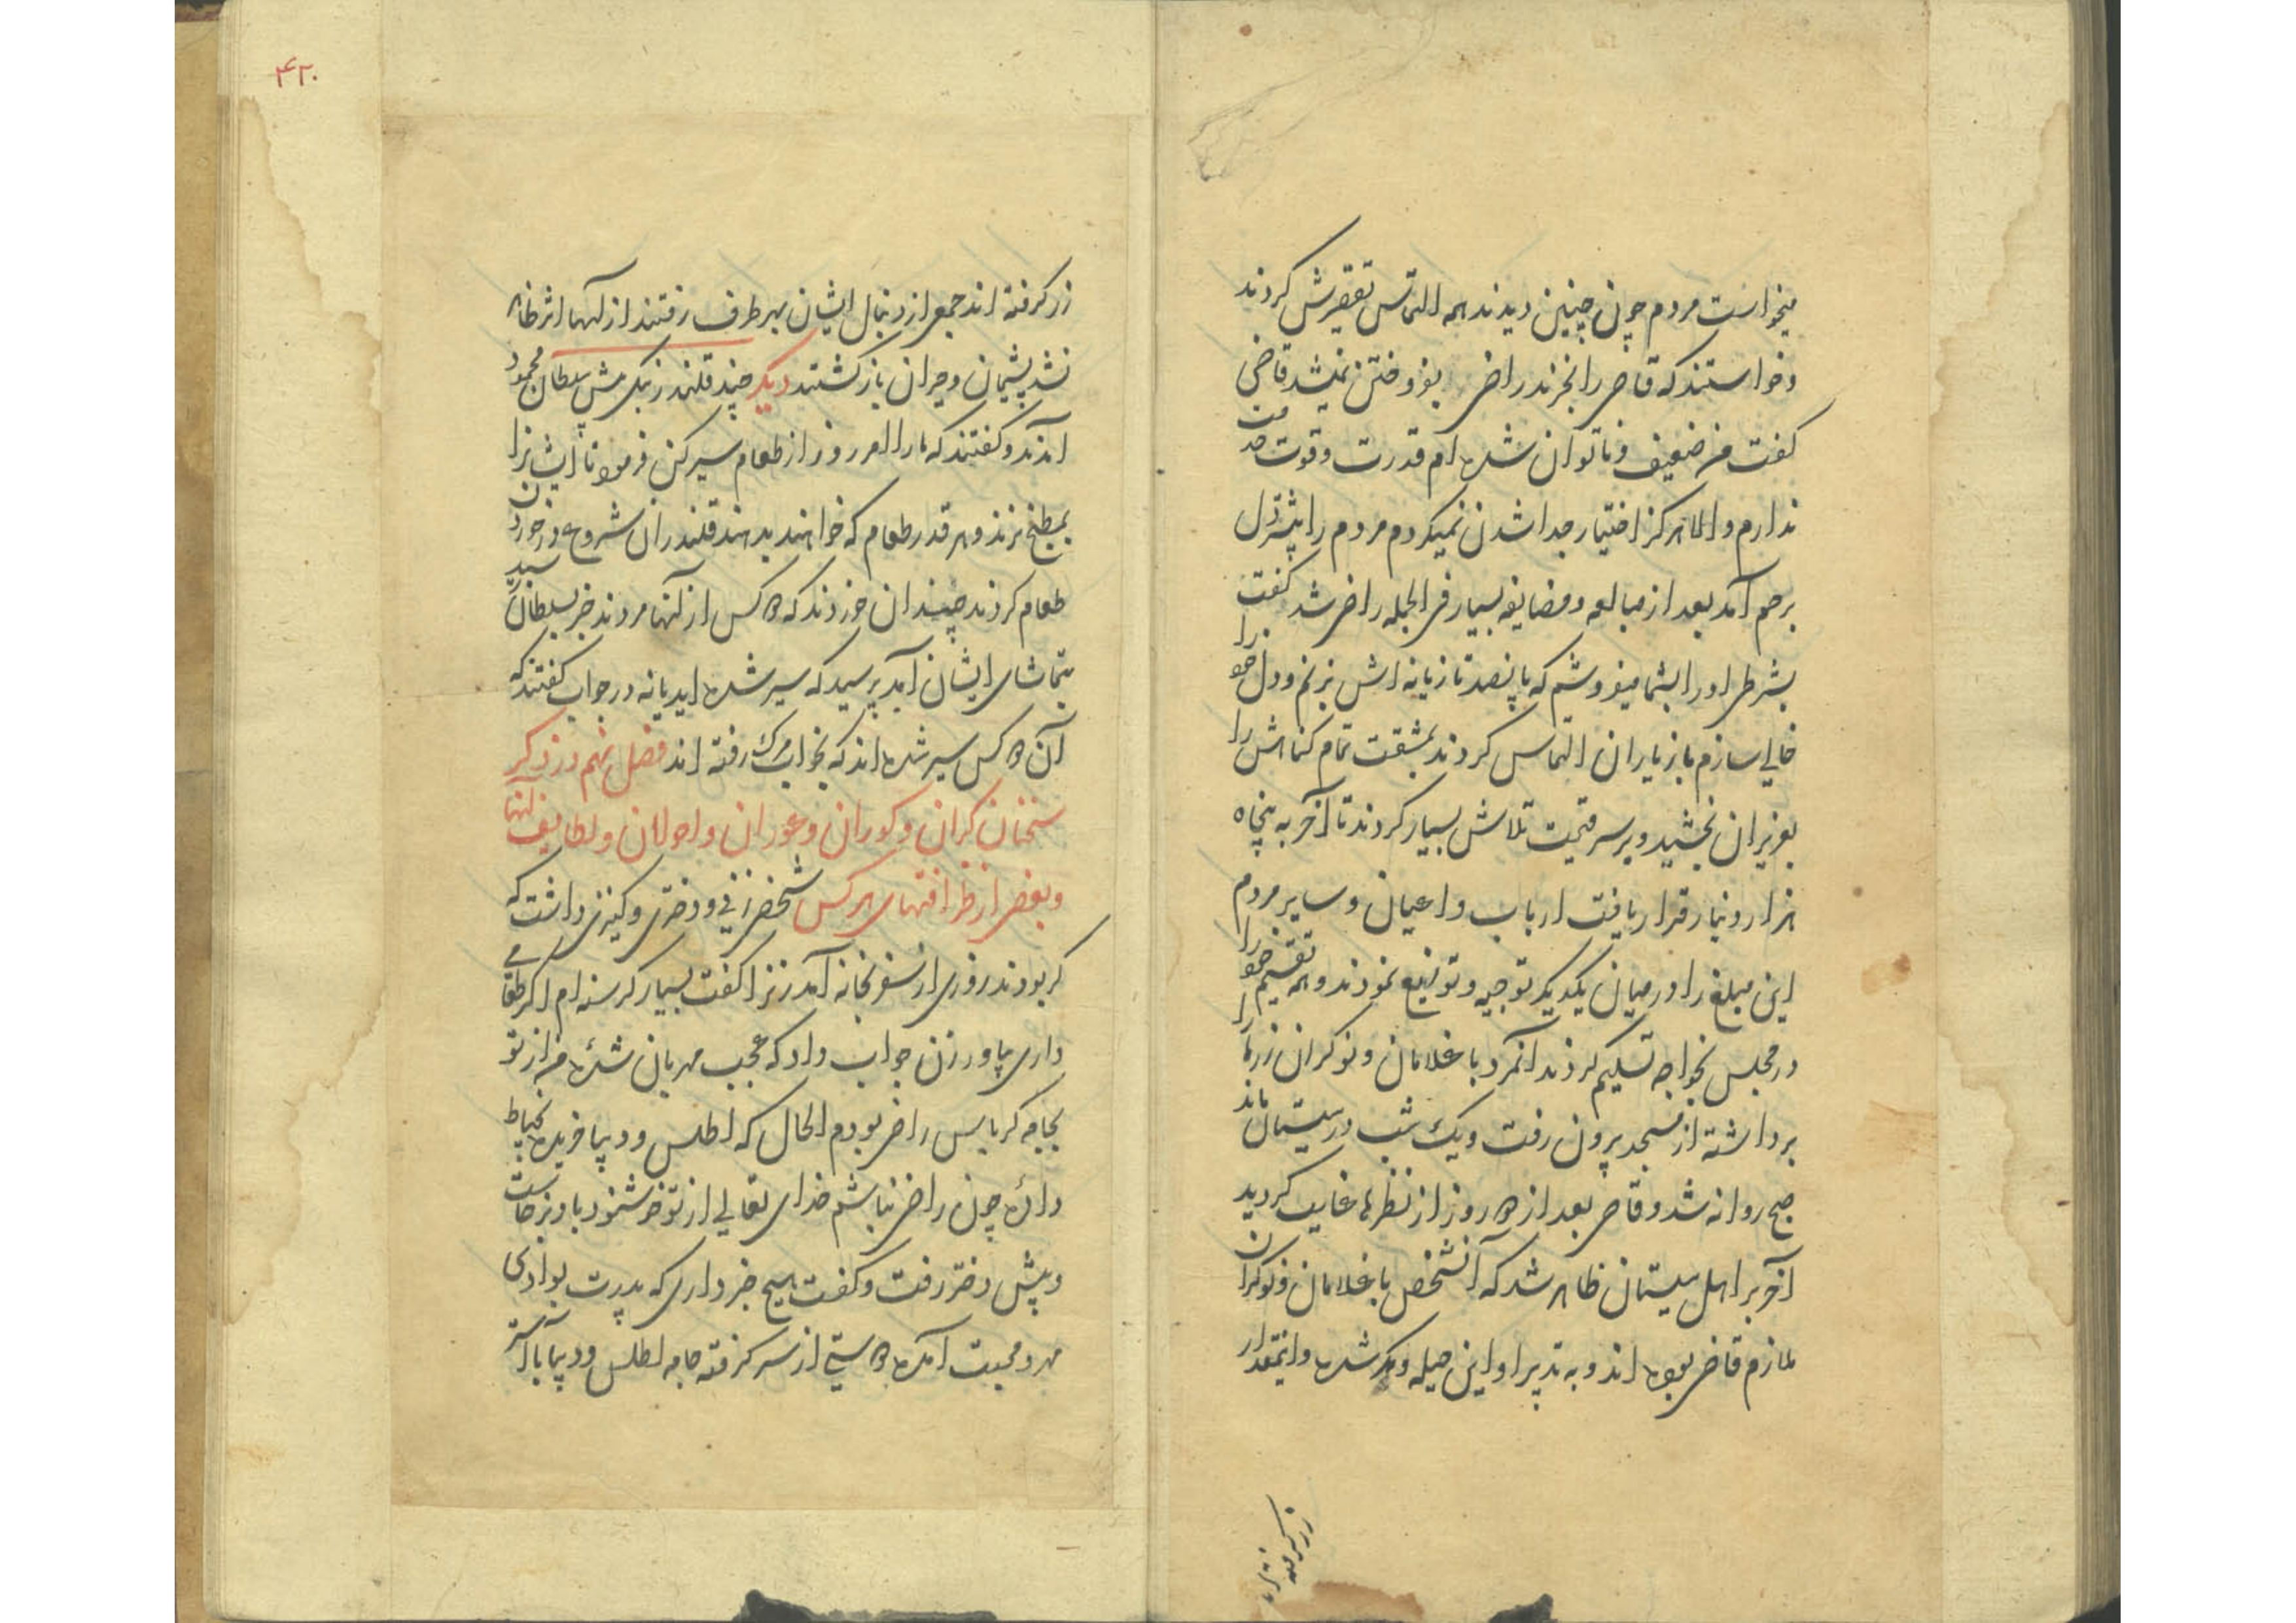 میخواست مردم چون چنین دیدند همه التماس تقصیرش کردند
و خواستند که قاضی را بخرند راضی بفروختن نمیشد قاضی
گفت من ضعیف و ناتوان شده ام قدرت و قوت خدمت
ندارم و الا هرگز اختیار جدا شدن نمیکردم مردم را بیشتر دل
برحم آمد بعد از مبالغه و مضایقه بسیار فی الجمله راضی شد گفت
بشرطی او را بشما میفروشم که پانصد تازیانه اش بزنم و دل خود را
خالی سازم باز یاران التماس کردند بمشقت تمام گناهش را
بعزیزان بخشید و بر سر قیمت تلاش بسیار کردند تا آخر به پنجاه
هزار دینار قرار یافت ارباب و اعیان و سایر مردم
این مبلغ را در میان یکدیگر توجیه و توزیع نمودند و همه تقسیم خود را
در مجلس بخواجه تسلیم کردند آنمرد با غلامان و نوکران زرها را
برداشته از مسجد بیرون رفت و یک شب در سیستان ماند
صبح روانه شد و قاضی بعد از ده روز از نظرها غایب گردید
آخر بر اهل سیستان ظاهر شد که آنشخص با غلامان و نوکران
ملازم قاضی بوده اند و به تدبیر او این حیله و مکر شده و اینمقدار
زر گرفته اند جمعی از دنبال ایشان بهر طرف رفتند از آنها اثر ظاهر
نشد پشیمان و حیران باز گشتند دیگر چند قلندر بنکی پیش سلطان محمود
آمدند و گفتند که ما را امروز از طعام سیر کن فرمود تا ایشانرا
بمطبخ برند و هر قدر طعام که خواهند بدهند قلندران شروع در خوردن
طعام کردند چندان خوردند که ده کس از آنها مردند خبر بسلطان رسید
بتماشای ایشان آمد پرسید که سیر شده اید یا نه در جواب گفتند که
آن ده کس سیر شده اند که بخواب مرگ رفته اند فصل نهم در ذکر
سخنان کران و کوران و عوران و احولان و لطایف آنها
و بعضی از ظرافتهای هر کس شخصی زنی و دختری و کنیزی داشت که
کر بودند روزی از سفر بخانه آمد زنرا گفت بسیار گرسنه ام اگر طعامی
داری بیاور زن جواب داد که عجب مهربان شده من از تو
بجامه کرباس راضی بودم الحال که اطلس و دیبا خریده بخیاط
داده چون راضی نباشم خدای تعالی از تو خوشنود باد برخاست
و پیش دختر رفت و گفت هیچ خبر داری که پدرت بوادی
مهر و محبت آمده دوستی از سر گرفته جامه اطلس و دیبا با آستر
۴۲۰